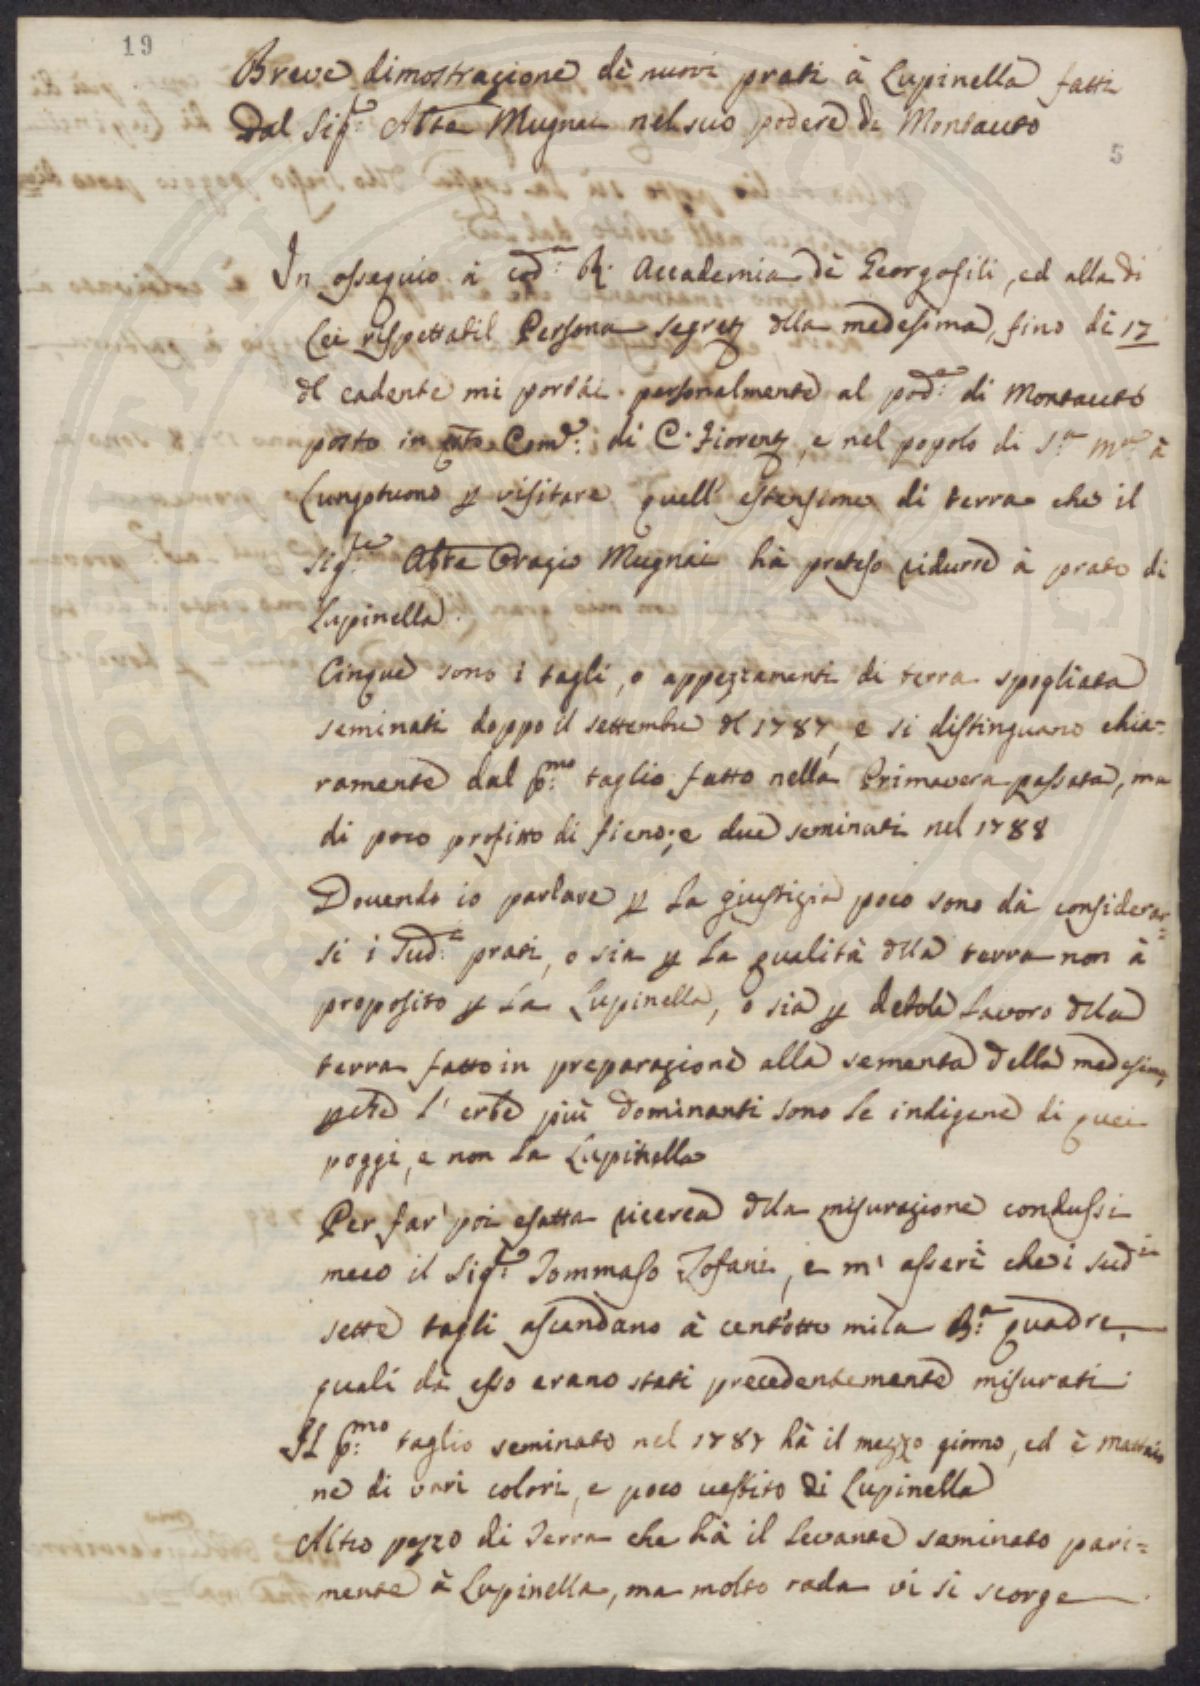 19
Breve dimostrazione de nuovi prati à Lupinella fatti
Dal Sig.re Abte Mugnai nel suo podere di Montauto
5
In ossequio à cod.a R. Accademia dè Georgofili, ed alla di
Lei rispettabil Persona Segret. dlla medesima, fino dè 17
dl cadente mi portai personalmente al pod.e di Montauto
posto in Com.tà di C. Fiorent., e nel popolo di S.a M.a à
Lungotuono p visitare quell' estensione di terra che il
Sig.re Abte Orazio Mugnai hà preteso ridurre à prato di
Lupinella.
Cinque sono i tagli, o appezzamenti di terra spogliata
seminati doppo il settembre dl 1787, e si distinguano chia=
ramente dal p.mo taglio fatto nella Primavera passata, ma
di poco profitto di fieno; e due seminati nel 1788
Dovendo io parlare p la giustizia poco sono dà considerar=
si i sud.i prati, o sia p la qualità dlla terra non à
proposito p la Lupinella, o sia p debole lavoro dlla
terra fatto in preparazione alla sementa della medesima
pche l' erbe più dominanti sono le indigene di quei
poggi, e non la Lupinella
Per far' poi esatta ricerca dlla misurazione condussi
meco il Sig.re Tommaso Tofani, e m' asserì che i sud.i
sette tagli ascendano à cent'otto mila B.a quadre,
quali dà esso erano stati precedentemente misurati
Il p.mo taglio seminato nel 1787 hà il mezzo giorno, ed è mattaio
ne di vari colori, e poco vestito di Lupinella
Altro pezzo di Terra che hà il levante seminato pari=
mente à Lupinella, ma molto rada vi si scorge